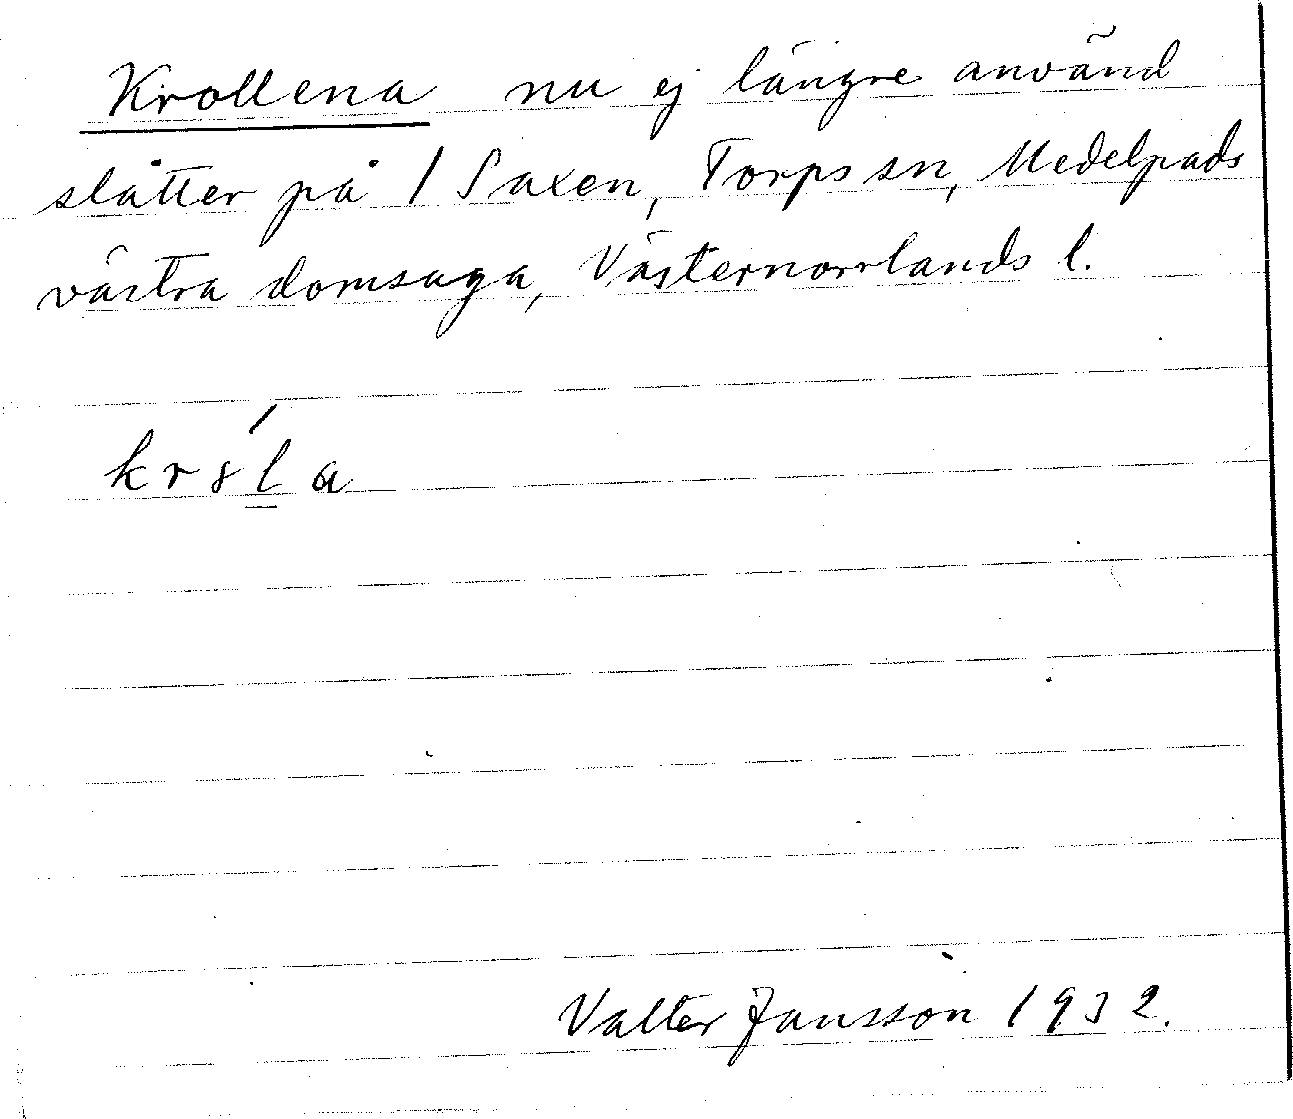 Krollena nu ej längre använd
slåtter på 1 Saxen, Torps sn, Medelpads
västra domsaga, Västernorrlands l.
kr8ĺ̲a
Valter Jansson 1932.